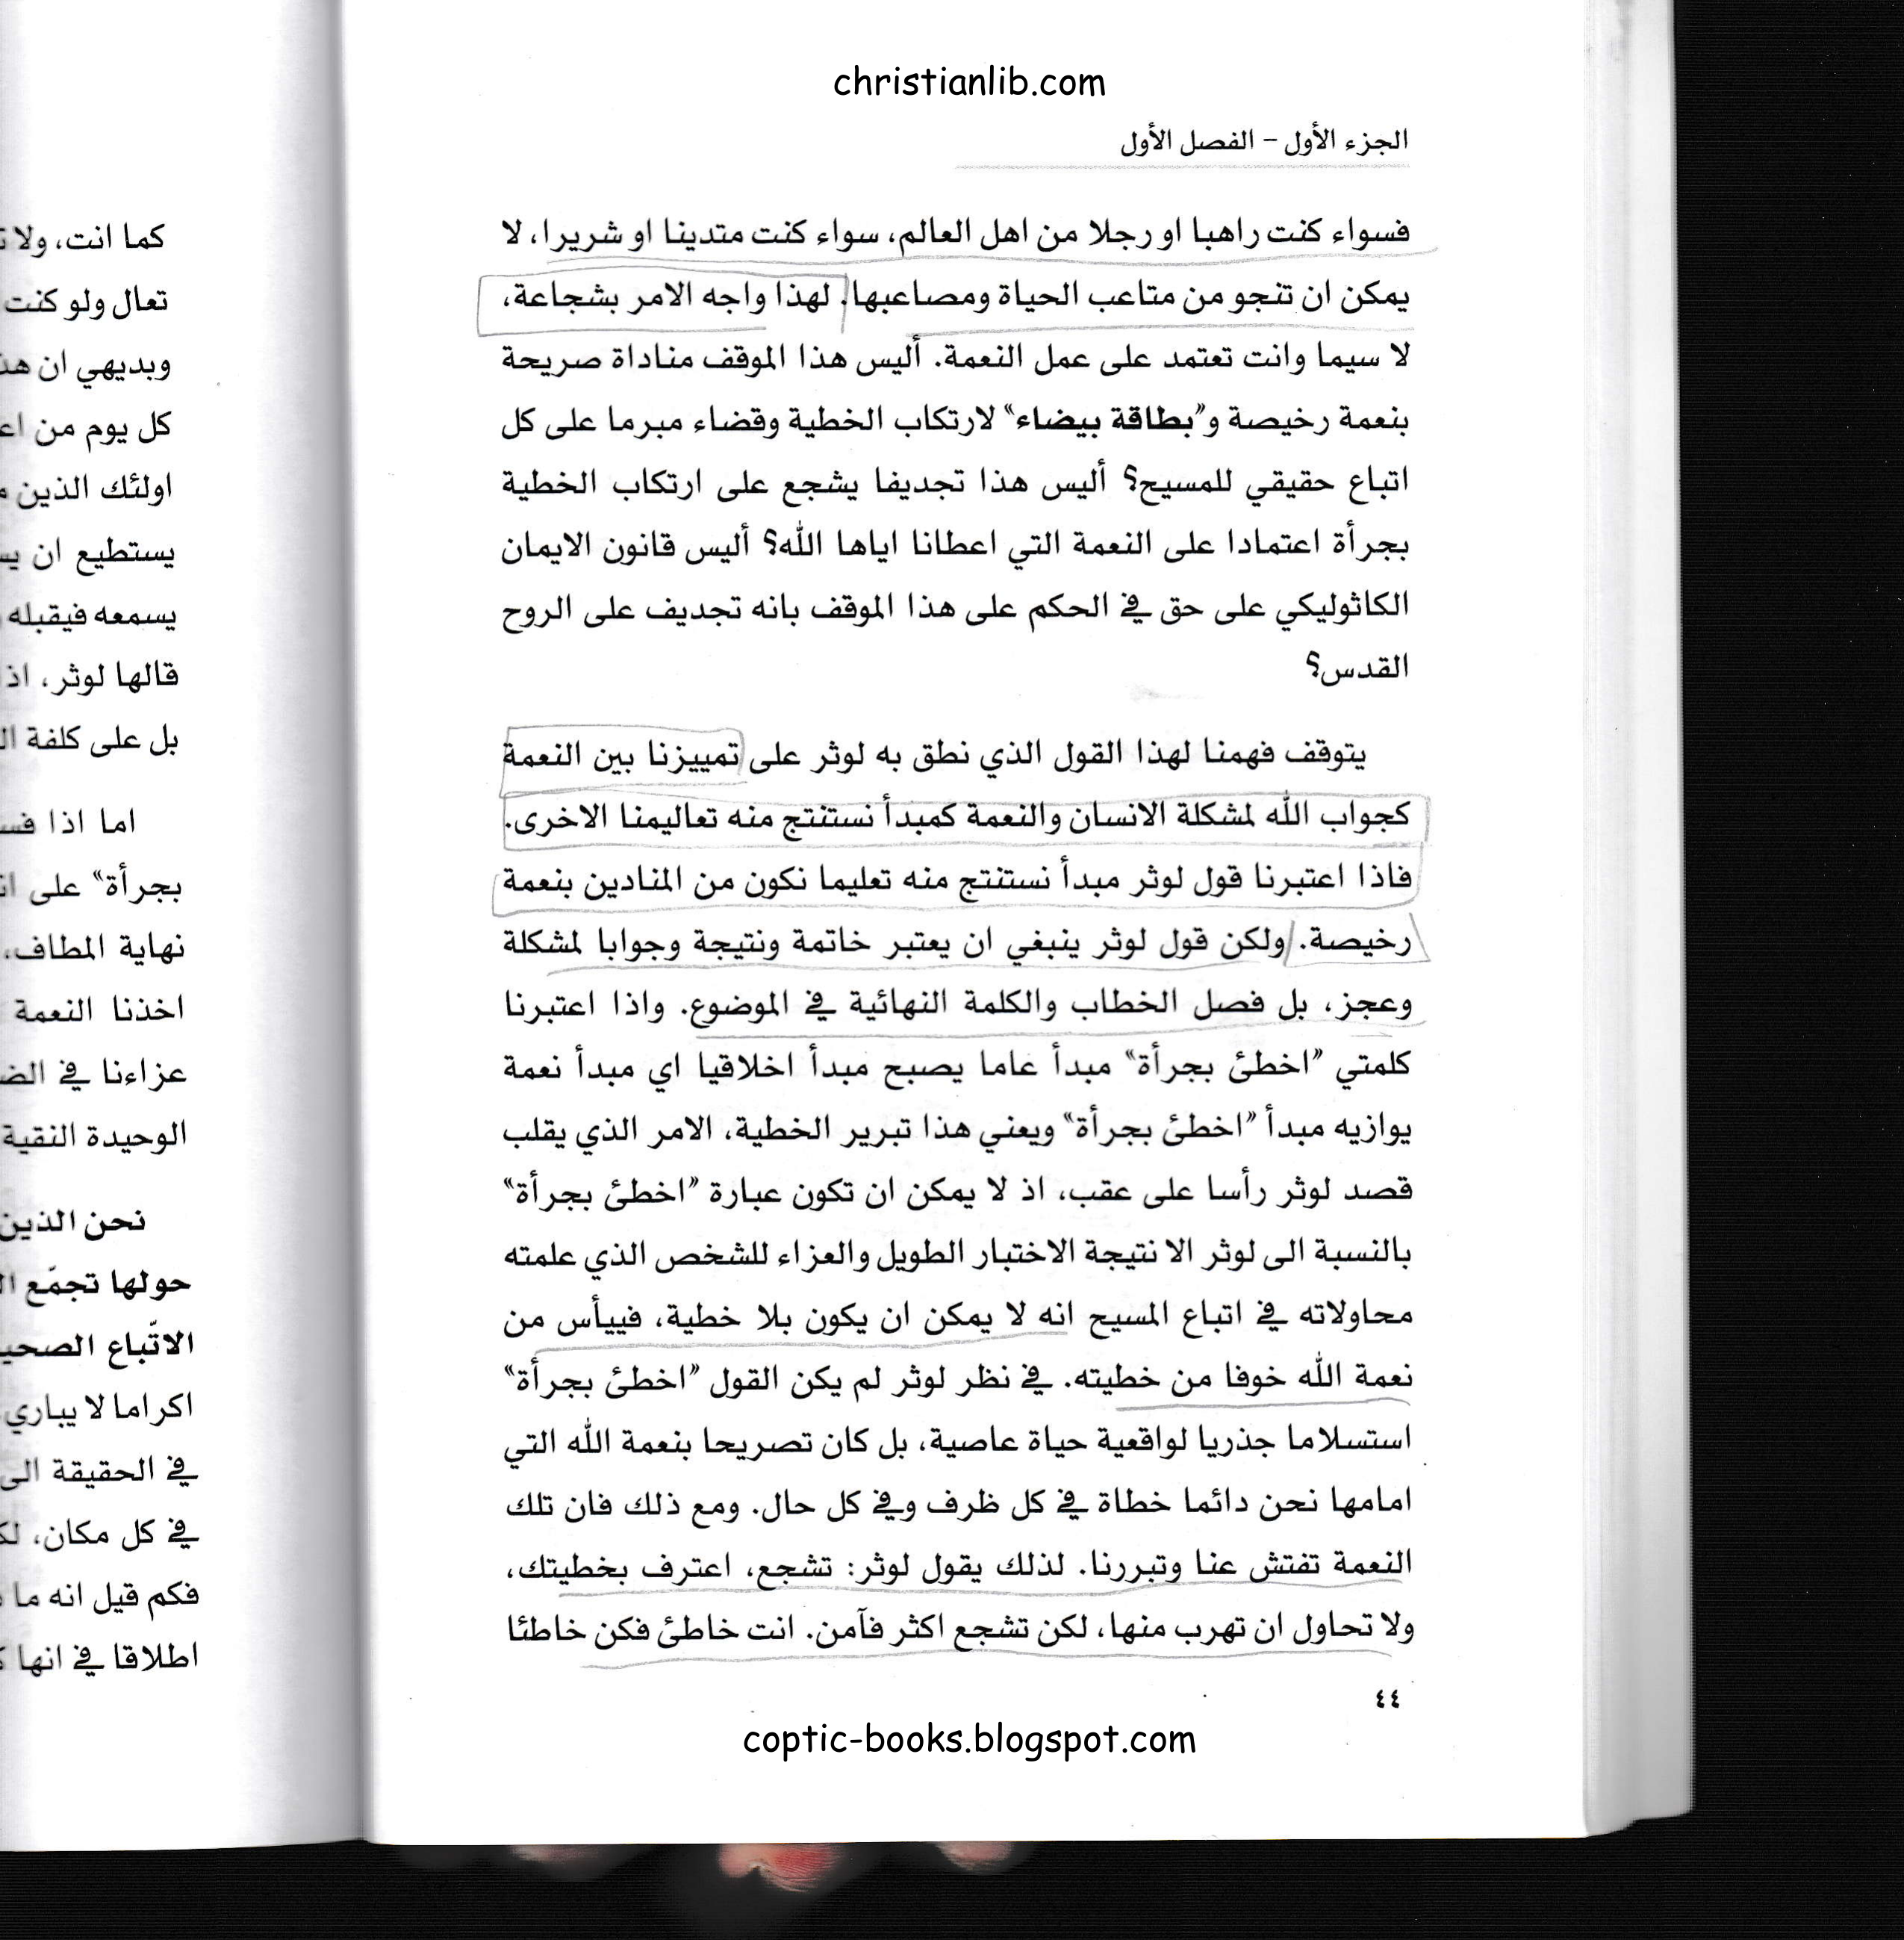 christianlib.com
الجزء الأول – الفصل الأول
فسواء كنت راهبا او رجلا من اهل العالم، سواء كنت متدينا او شريرا، لا
يمكن ان تنجو من متاعب الحياة ومصاعبها. لهذا واجه الامر بشجاعة،
لا سيما وانت تعتمد على عمل النعمة. أليس هذا الموقف مناداة صريحة
بنعمة رخيصة و”بطاقة بيضاء“ لارتكاب الخطية وقضاء مبرما على كل
اتباع حقيقي للمسيح؟ أليس هذا تجديفا يشجع على ارتكاب الخطية
بجرأة اعتمادا على النعمة التي اعطانا اياها الله؟ أليس قانون الايمان
الكاثوليكي على حق في الحكم على هذا الموقف بانه تجديف على الروح
القدس؟
يتوقف فهمنا لهذا القول الذي نطق به لوثر على تمييزنا بين النعمة
كجواب الله لمشكلة الانسان والنعمة كمبدأ نستنتج منه تعاليمنا الاخرى.
فاذا اعتبرنا قول لوثر مبدأ نستنتج منه تعليما نكون من المنادين بنعمة
رخيصة. ولكن قول لوثر ينبغي ان يعتبر خاتمة ونتيجة وجوابا لمشكلة
وعجز، بل فصل الخطاب والكلمة النهائية في الموضوع. واذا اعتبرنا
كلمتي ”اخطئ بجرأة“ مبدأ عاما يصبح مبدأ اخلاقيا اي مبدأ نعمة
يوازيه مبدأ ”اخطئ بجرأة“ ويعني هذا تبرير الخطية، الامر الذي يقلب
قصد لوثر رأسا على عقب، اذ لا يمكن ان تكون عبارة ”اخطئ بجرأة“
بالنسبة الى لوثر الا نتيجة الاختبار الطويل والعزاء للشخص الذي علمته
محاولاته في اتباع المسيح انه لا يمكن ان يكون بلا خطية، فييأس من
نعمة الله خوفا من خطيته. في نظر لوثر لم يكن القول ”اخطئ بجرأة“
استسلاما جذريا لواقعية حياة عاصية، بل كان تصريحا بنعمة الله التي
امامها نحن دائما خطاة في كل ظرف وفي كل حال. ومع ذلك فان تلك
النعمة تفتش عنا وتبررنا. لذلك يقول لوثر: تشجع، اعترف بخطيتك،
ولا تحاول ان تهرب منها، لكن تشجع اكثر فآمن. انت خاطئ فكن خاطئا
٤٤
coptic-books.blogspot.com
كما انت، ولا
تعال ولو كنت
وبديهي ان
كل يوم من
اولئك الذين
يستطيع ان
يسمعه فيقبله
قالها لوثر، اذ
بل على كلفة
اما اذا
بجرأة“ على
نهاية المطاف،
اخذنا النعمة
عزاءنا في
الوحيدة النقية
نحن الذين
حولها تجمّع
الاتّباع
اكراما لا يباري
في الحقيقة الى
في كل مكان،
فكم قيل انه ما
اطلاقا في انها